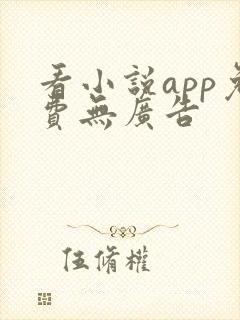 看小説app免
費無廣告
伍脩權